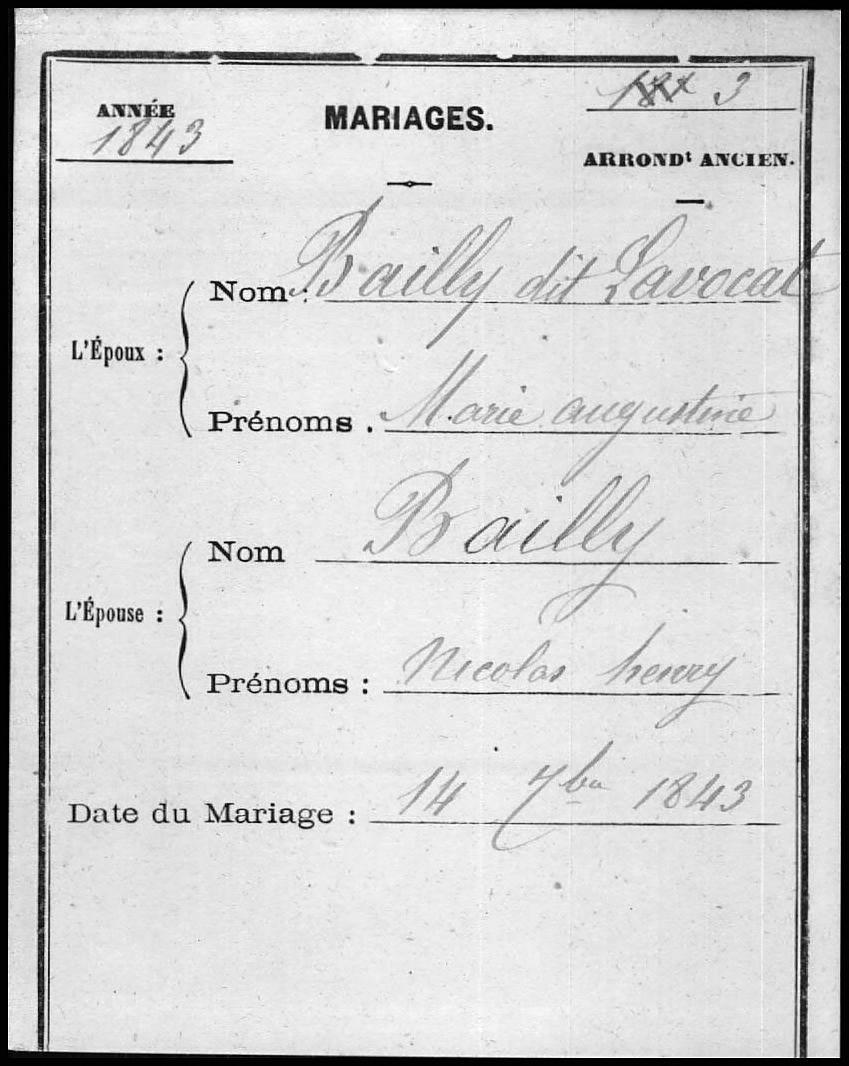 ANNÉE
1843
MARIAGES.
3
ARRONDt ANCIEN.
L'Époux :
Nom : Bailly dit Lavocat
Prénoms . Marie augustine
L'Épouse :
Nom Bailly
Prénoms : Nicolas henry
Date du Mariage : 14 7bre 1843